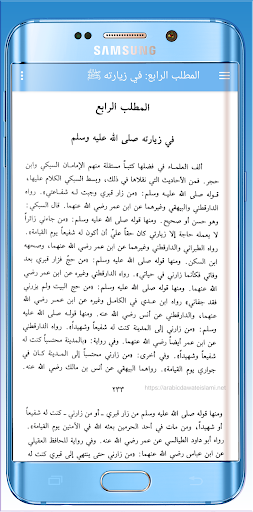 SAMSUNG
المطلب الرابع: في زيارته ﷺ
المطلب الرابع
في زيارته صلى الله عليه وسلم
ألف العلماء في فضلها كتباً مستقلة منهم الإمامان السبكي وابن
حجر. فمن الأحاديث التي نقلاها في ذلك، وبسط السبكي الكلام عليها،
قوله صلى الله عليه وسلم: «من زار قبري وجبت له شفاعتي». رواه
الدارقطني والبيهقي وغيرهما عن ابن عمر رضي الله عنهما. قال السبكي:
وهو حسن أو صحيح. ومنها قوله صلى الله عليه وسلم: «من جاءني زائراً
لا يعمله حاجة إلا زيارتي كان حقاً عليّ أن أكون له شفيعاً يوم القيامة».
رواه الطبراني والدارقطني وغيرهما عن ابن عمر رضي الله عنهما، وصححه
ابن السكن. ومنها قوله صلى الله عليه وسلم: «من حجّ فزار قبري بعد
وفاتي فكأنما زارني في حياتي». رواه الدارقطني والبيهقي وغيرهما عن ابن
عمر رضي الله عنهما. ومنها قوله: «من حج البيت ولم يزرني
فقد جفاني» رواه ابن عدي في الكامل وغيره عن ابن عمر رضي الله
عنهما. والدارقطني عن أنس رضي الله عنه. ومنها قوله صلى الله عليه
وسلم: «من زارني إلى المدينة كنت له شفيعاً وشهيداً». رواه الدارقطني
عن ابن عمر أيضاً رضي الله عنهما. وفي رواية: «بالمدينة محتسباً كنت له
شفيعاً وشهيداً». وفي أخرى: «من زارني محتسباً إلى المدينة كان في
جواري يوم القيامة». رواهما البيهقي عن أنس بن مالك رضي الله عنه.
٢٣٣
https://arabicdawateislami.net
ومنها قوله صلى الله عليه وسلم من زار قبري ـ أو من زارني ـ كنت له شفيعاً
أو شهيداً، ومن مات في أحد الحرمين بعثه الله من الآمنين يوم القيامة».
رواه أبو داود الطيالسي عن عمر رضي الله عنه. وفي رواية للحافظ العقيلي
عن ابن عباس رضي الله عنهما: «من زارني حتى ينتهي إلى قبري